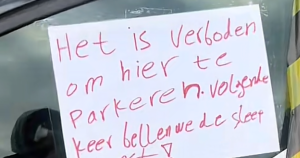 Het is verboden
om hier te
parkeren. volgende
keer bellen we de sleep